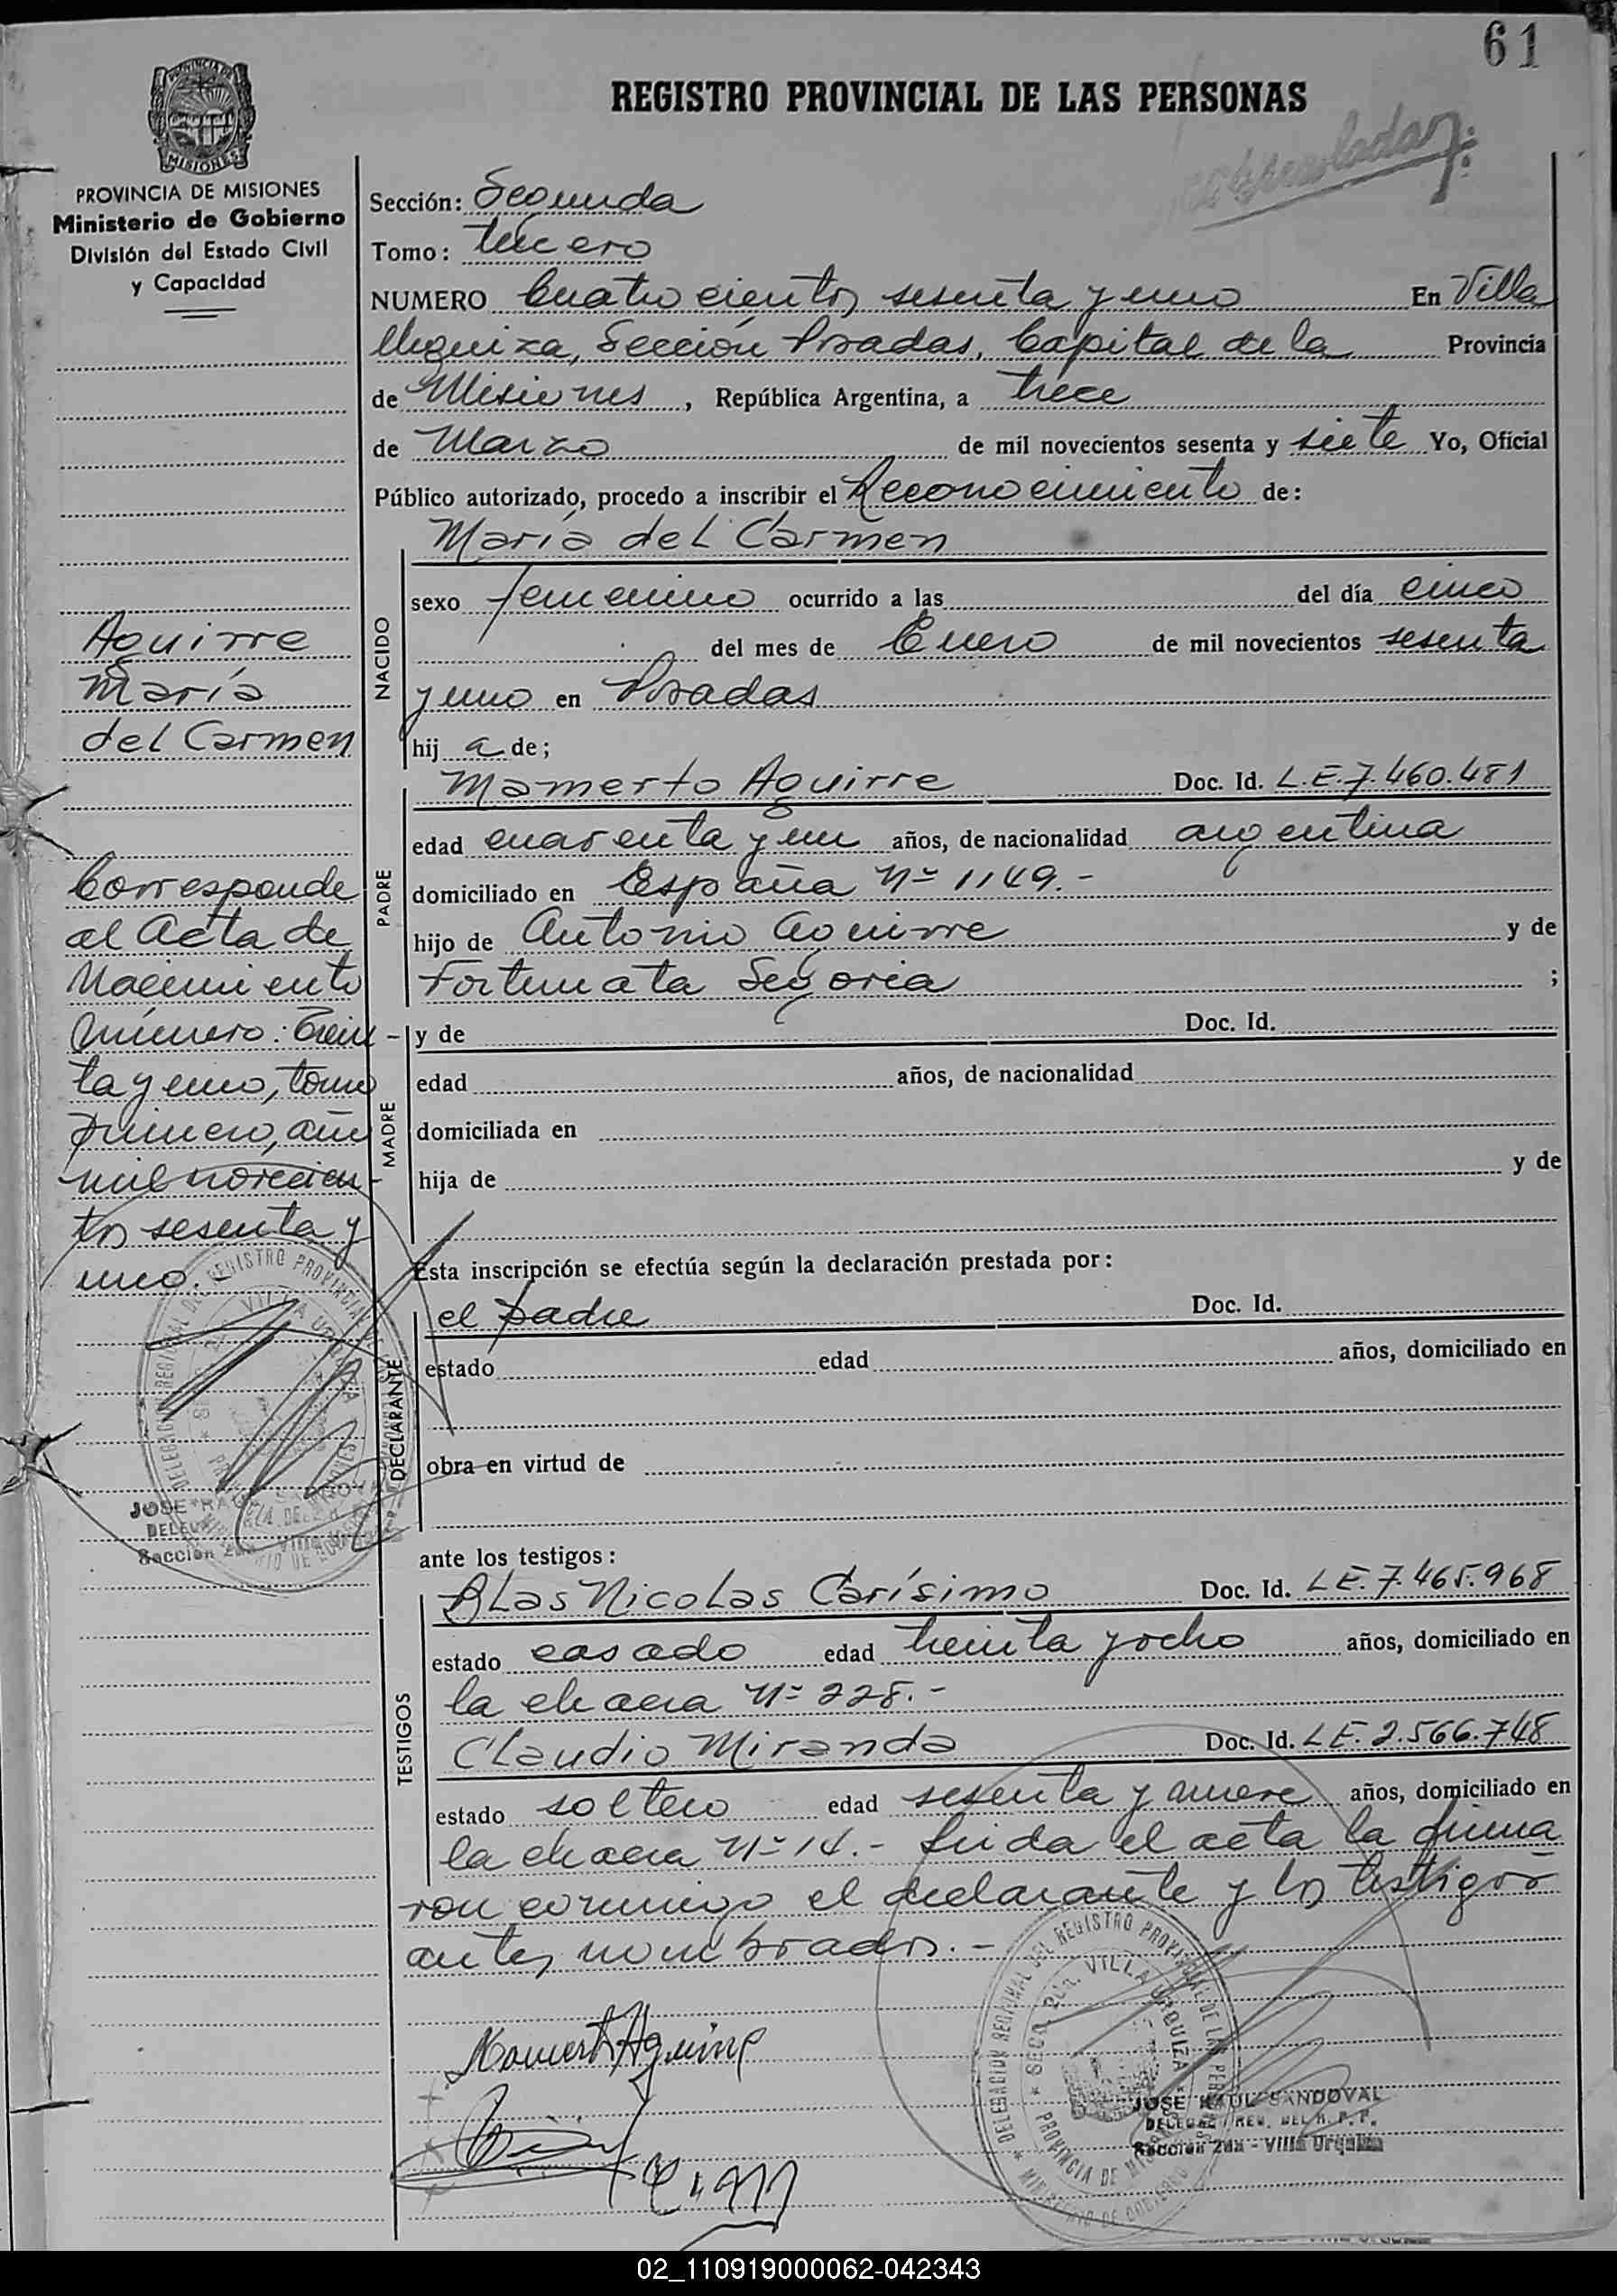 61
REGISTRO PROVINCIAL DE LAS PERSONAS
MISIONES
PROVINCIA DE MISIONES
Ministerio de Gobierno
División del Estado Civil
y Capacidad
Sección: Segunda
Tomo: tercero
NUMERO Cuatrocientos sesenta y uno En Villa
Urquiza, Sección Posadas, Capital de la Provincia
de Misiones, República Argentina, a trece
de Marzo de mil novecientos sesenta y siete Yo, Oficial
Público autorizado, procedo a inscribir el Reconocimiento de:
María del Carmen
NACIDO
sexo femenino ocurrido a las del día cinco
del mes de Enero de mil novecientos sesenta
y uno en Posadas
hij a de;
Aguirre
María
del Carmen
PADRE
Mamerto Aguirre Doc. Id. L.E.7.460.481
edad cuarenta y un años, de nacionalidad argentina
domiciliado en España Nº 1149.-
hijo de Antonio Aguirre y de
Fortunata Segovia ;
Corresponde
al Acta de
Nacimiento
número: Trein-
ta y uno, tomo
primero, año
mil novecien-
tos sesenta y
uno.-
MADRE
y de Doc. Id.
edad años, de nacionalidad
domiciliada en
hija de y de
Esta inscripción se efectúa según la declaración prestada por:
DECLARANTE
el padre Doc. Id.
estado edad años, domiciliado en
obra en virtud de
ante los testigos:
TESTIGOS
Blas Nicolas Carísimo Doc. Id. LE.7.465.968
estado casado edad treinta y ocho años, domiciliado en
la chacra Nº 228.-
Claudio Miranda Doc. Id. LE.2.566.748
estado soltero edad sesenta y nueve años, domiciliado en
la chacra Nº 14.- Leida el acta la firma
ron conmigo el declarante y los testigos
antes nombrados.-
Mamerto Aguirre
DELEGACION REGIONAL DEL REGISTRO PROVINCIAL DE LAS PERSONAS
VILLA URQUIZA
PROVINCIA DE MISIONES
MINISTERIO DE GOBIERNO
JOSE RAUL SANDOVAL
Sección 2da - Villa Urquiza
JOSE RAUL SANDOVAL
DELEGADO REG. DEL R. P. P.
Sección 2da - Villa Urquiza
02_110919000062-042343